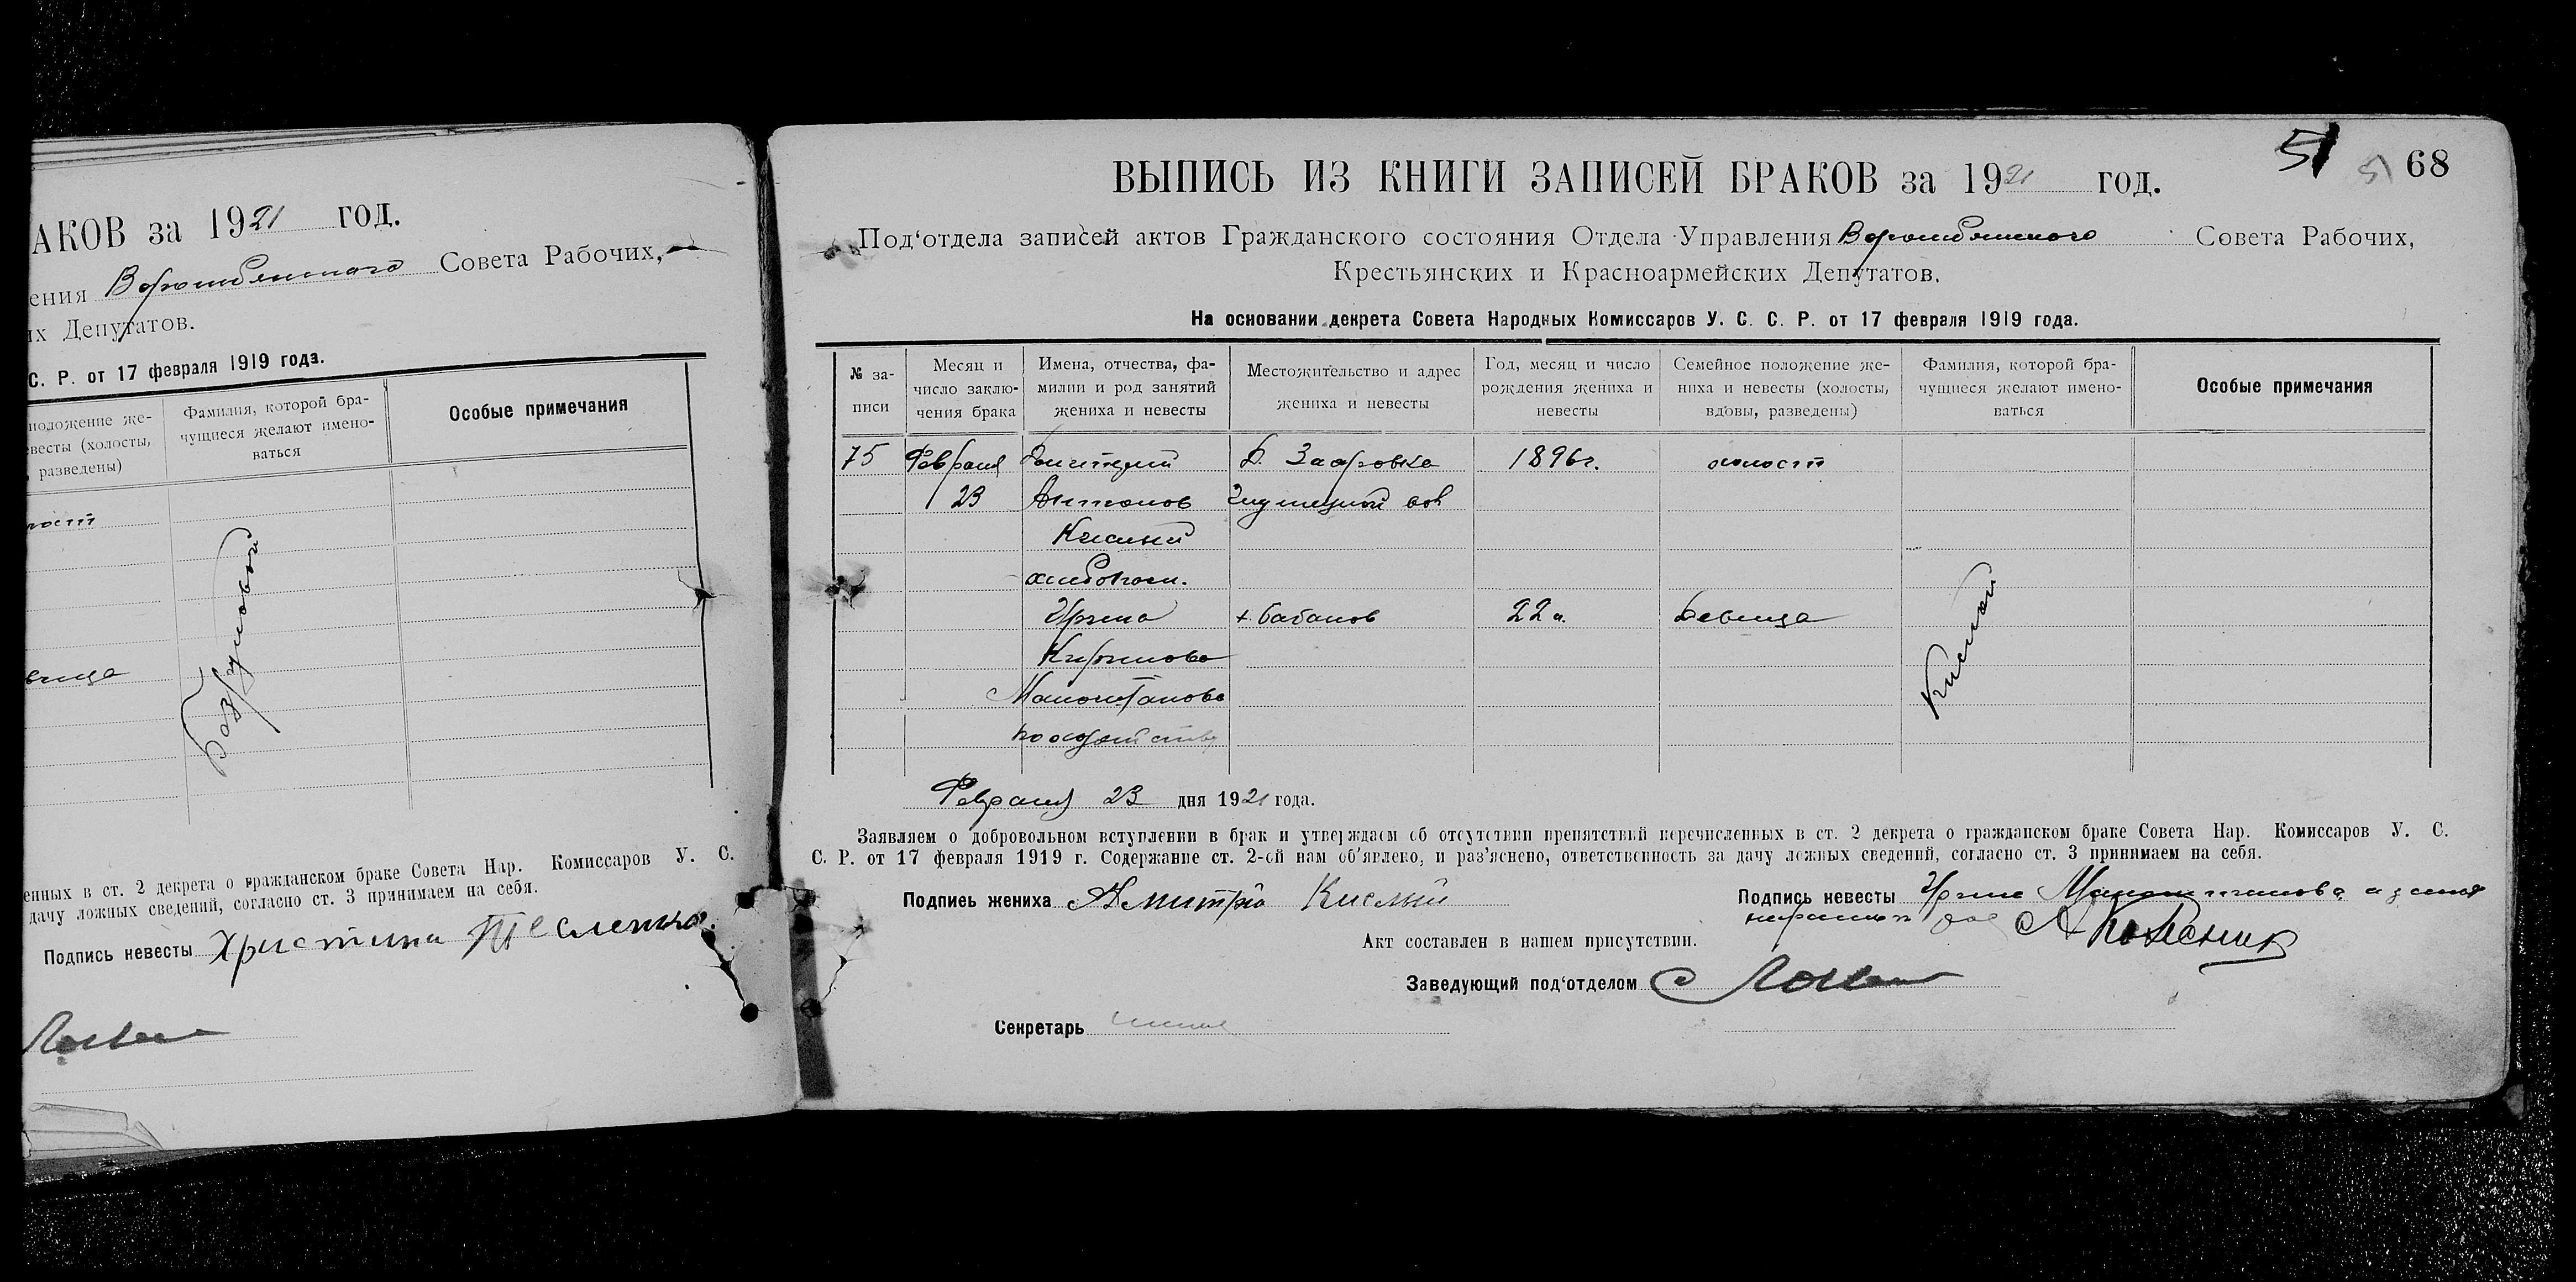 АКОВ за 1921 год.
ения Ворожбянского Совета Рабочих,
их Депутатов.
С. Р. от 17 февраля 1919 года.
положение же-
весты (холосты,
разведены)
Фамилия, которой бра-
чущиеся желают имено-
ваться
Особые примечания
лост
вица
енных в ст. 2 декрета о гражданском браке Совета Нар. Комиссаров У. С.
дачу ложных сведений, согласно ст. 3 принимаем на себя.
Подпись невесты Христина Тесленко
51 51 68
ВЫПИСЬ ИЗ КНИГИ ЗАПИСЕЙ БРАКОВ за 1921 год.
Под‘отдела записей актов Гражданского состояния Отдела Управления Ворожбянского Совета Рабочих,
Крестьянских и Красноармейских Депутатов.
На основании декрета Совета Народных Комиссаров У. С. С. Р. от 17 февраля 1919 года.
№ за-
писи
Месяц и
число заклю-
чения брака
Имена, отчества, фа-
милии и род занятий
жениха и невесты
Местожительство и адрес
жениха и невесты
Год, месяц и число
рождения жениха и
невесты
Семейное положение же-
ниха и невесты (холосты,
вдовы, разведены)
Фамилия, которой бра-
чущиеся желают имено-
ваться
Особые примечания
75 Февраля Димитрий 1896г. холост
23 Антонов
Кислый
хлебопаш.
Ирина х. Бабаков 22 л. Девица
Кирилова
Кислый
Февраля 23 дня 1921 года.
Заявляем о добровольном вступлении в брак и утверждаем об отсутствии препятствий перечисленных в ст. 2 декрета о гражданском браке Совета Нар. Комиссаров У. С.
С. Р. от 17 февраля 1919 г. Содержание ст. 2-ой нам об‘явлено, и раз‘яснено, ответственность за дачу ложных сведений, согласно ст. 3 принимаем на себя.
Подпись жениха Дмитрий Кислый
Подпись невесты Ирина
Акт составлен в нашем присутствии.
Заведующий под‘отделом
Секретарь